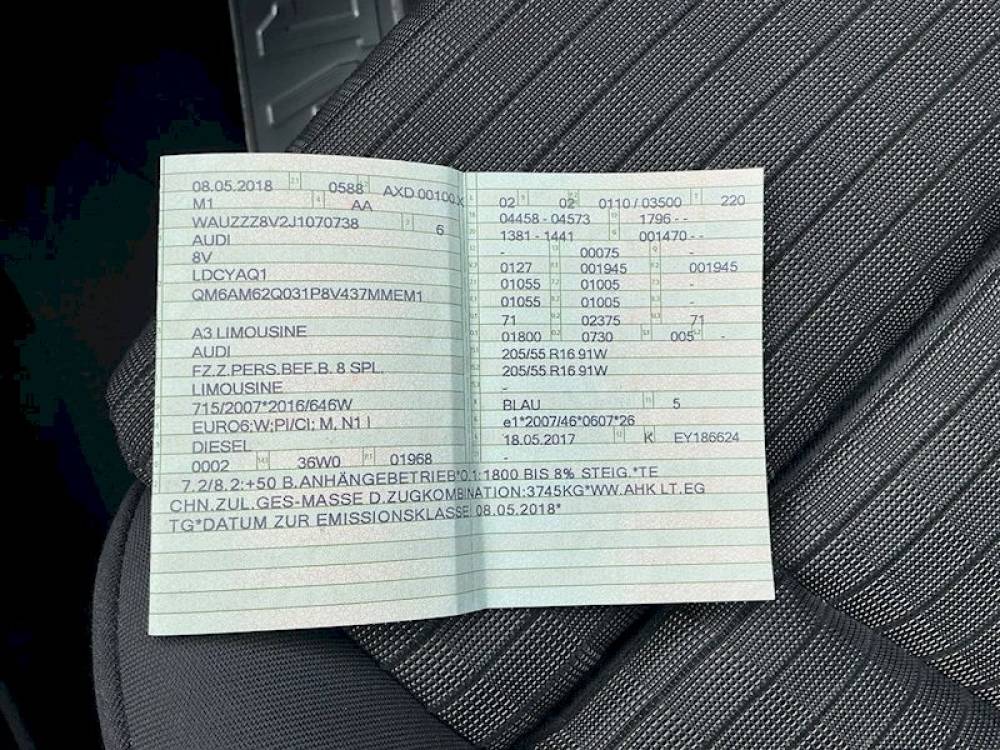 08.05.2018 0588 AXD 00100 X
M1 AA
WAUZZZ8V2J1070738 6
AUDI
8V
LDCYAQ1
QM6AM62Q031P8V437MMEM1
A3 LIMOUSINE
AUDI
FZ.Z.PERS.BEF.B. 8 SPL.
LIMOUSINE
715/2007*2016/646W
EURO6;W;PI/CI; M, N1 I
DIESEL
0002 36W0 01968
02 02 0110 / 03500 220
04458 - 04573 1796 - -
1381 - 1441 001470 - -
- 00075 -
0127 001945 001945
01055 01005 -
01055 01005 -
71 02375 71
01800 0730 005 -
205/55 R16 91W
205/55 R16 91W
-
BLAU 5
e1*2007/46*0607*26
18.05.2017 K EY186624
-
7.2/8.2:+50 B.ANHÄNGEBETRIEB*0.1:1800 BIS 8% STEIG.*TE
CHN.ZUL.GES-MASSE D.ZUGKOMBINATION:3745KG*WW.AHK LT.EG
TG*DATUM ZUR EMISSIONSKLASSE 08.05.2018*